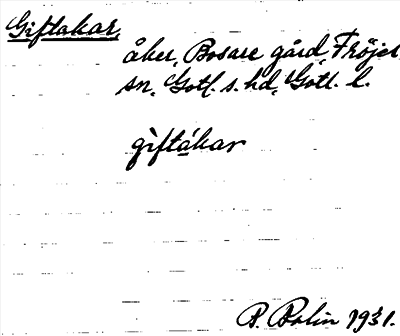 Giftakar,
åker, Bosare gård, Fröjel
sn, Gotl. s. hd, Gotl. l.
gìftákar
P. Bolin 1931.